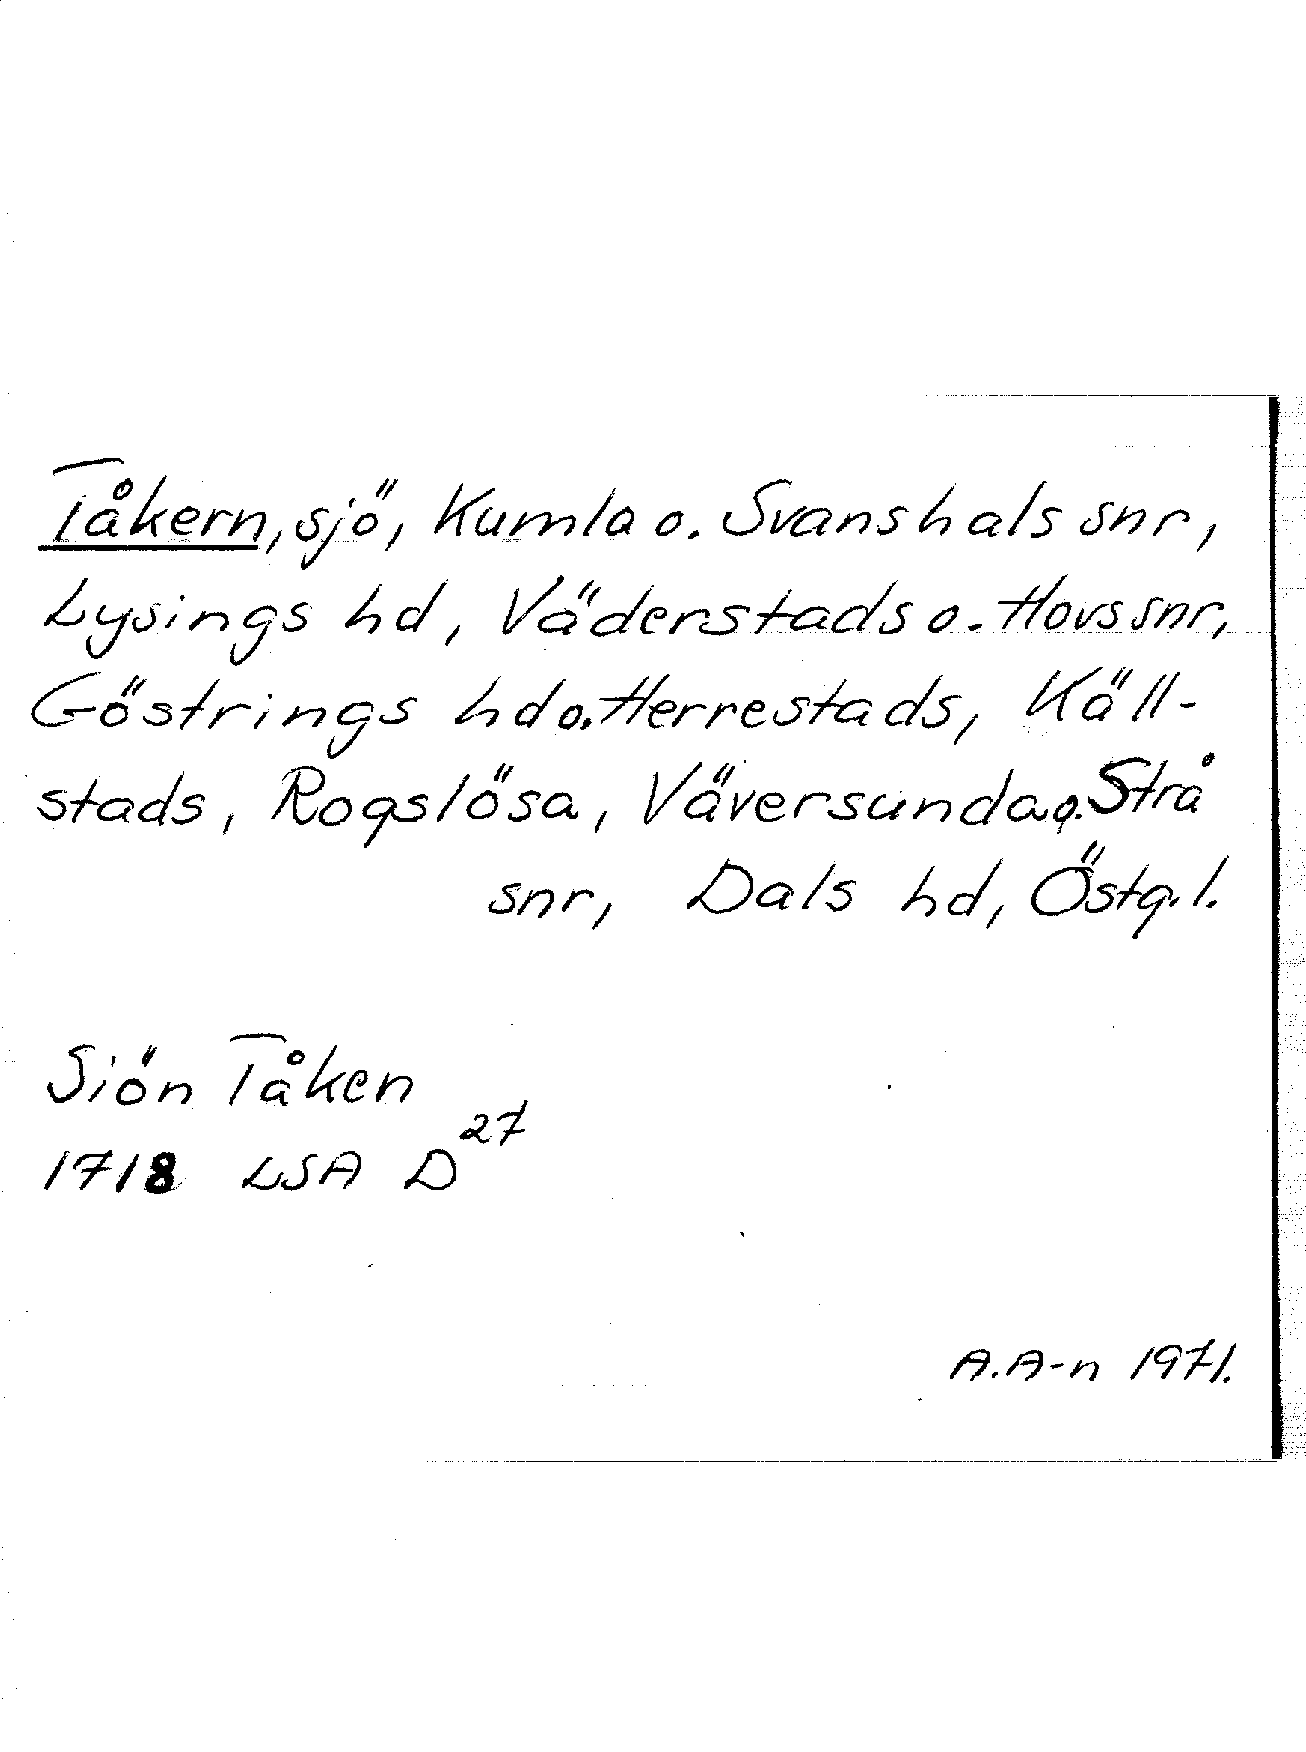 Tåkern, sjö, Kumla o. Svanshals snr,
Lysings hd, Väderstads o. Hovs snr,
Göstrings hd o. Herrestads, Käll-
stads, Rogslösa, Väversunda o. Strå
snr, Dals hd, Östg.l.
Siön Tåken
1718 LSA D27
A.A-n 1971.